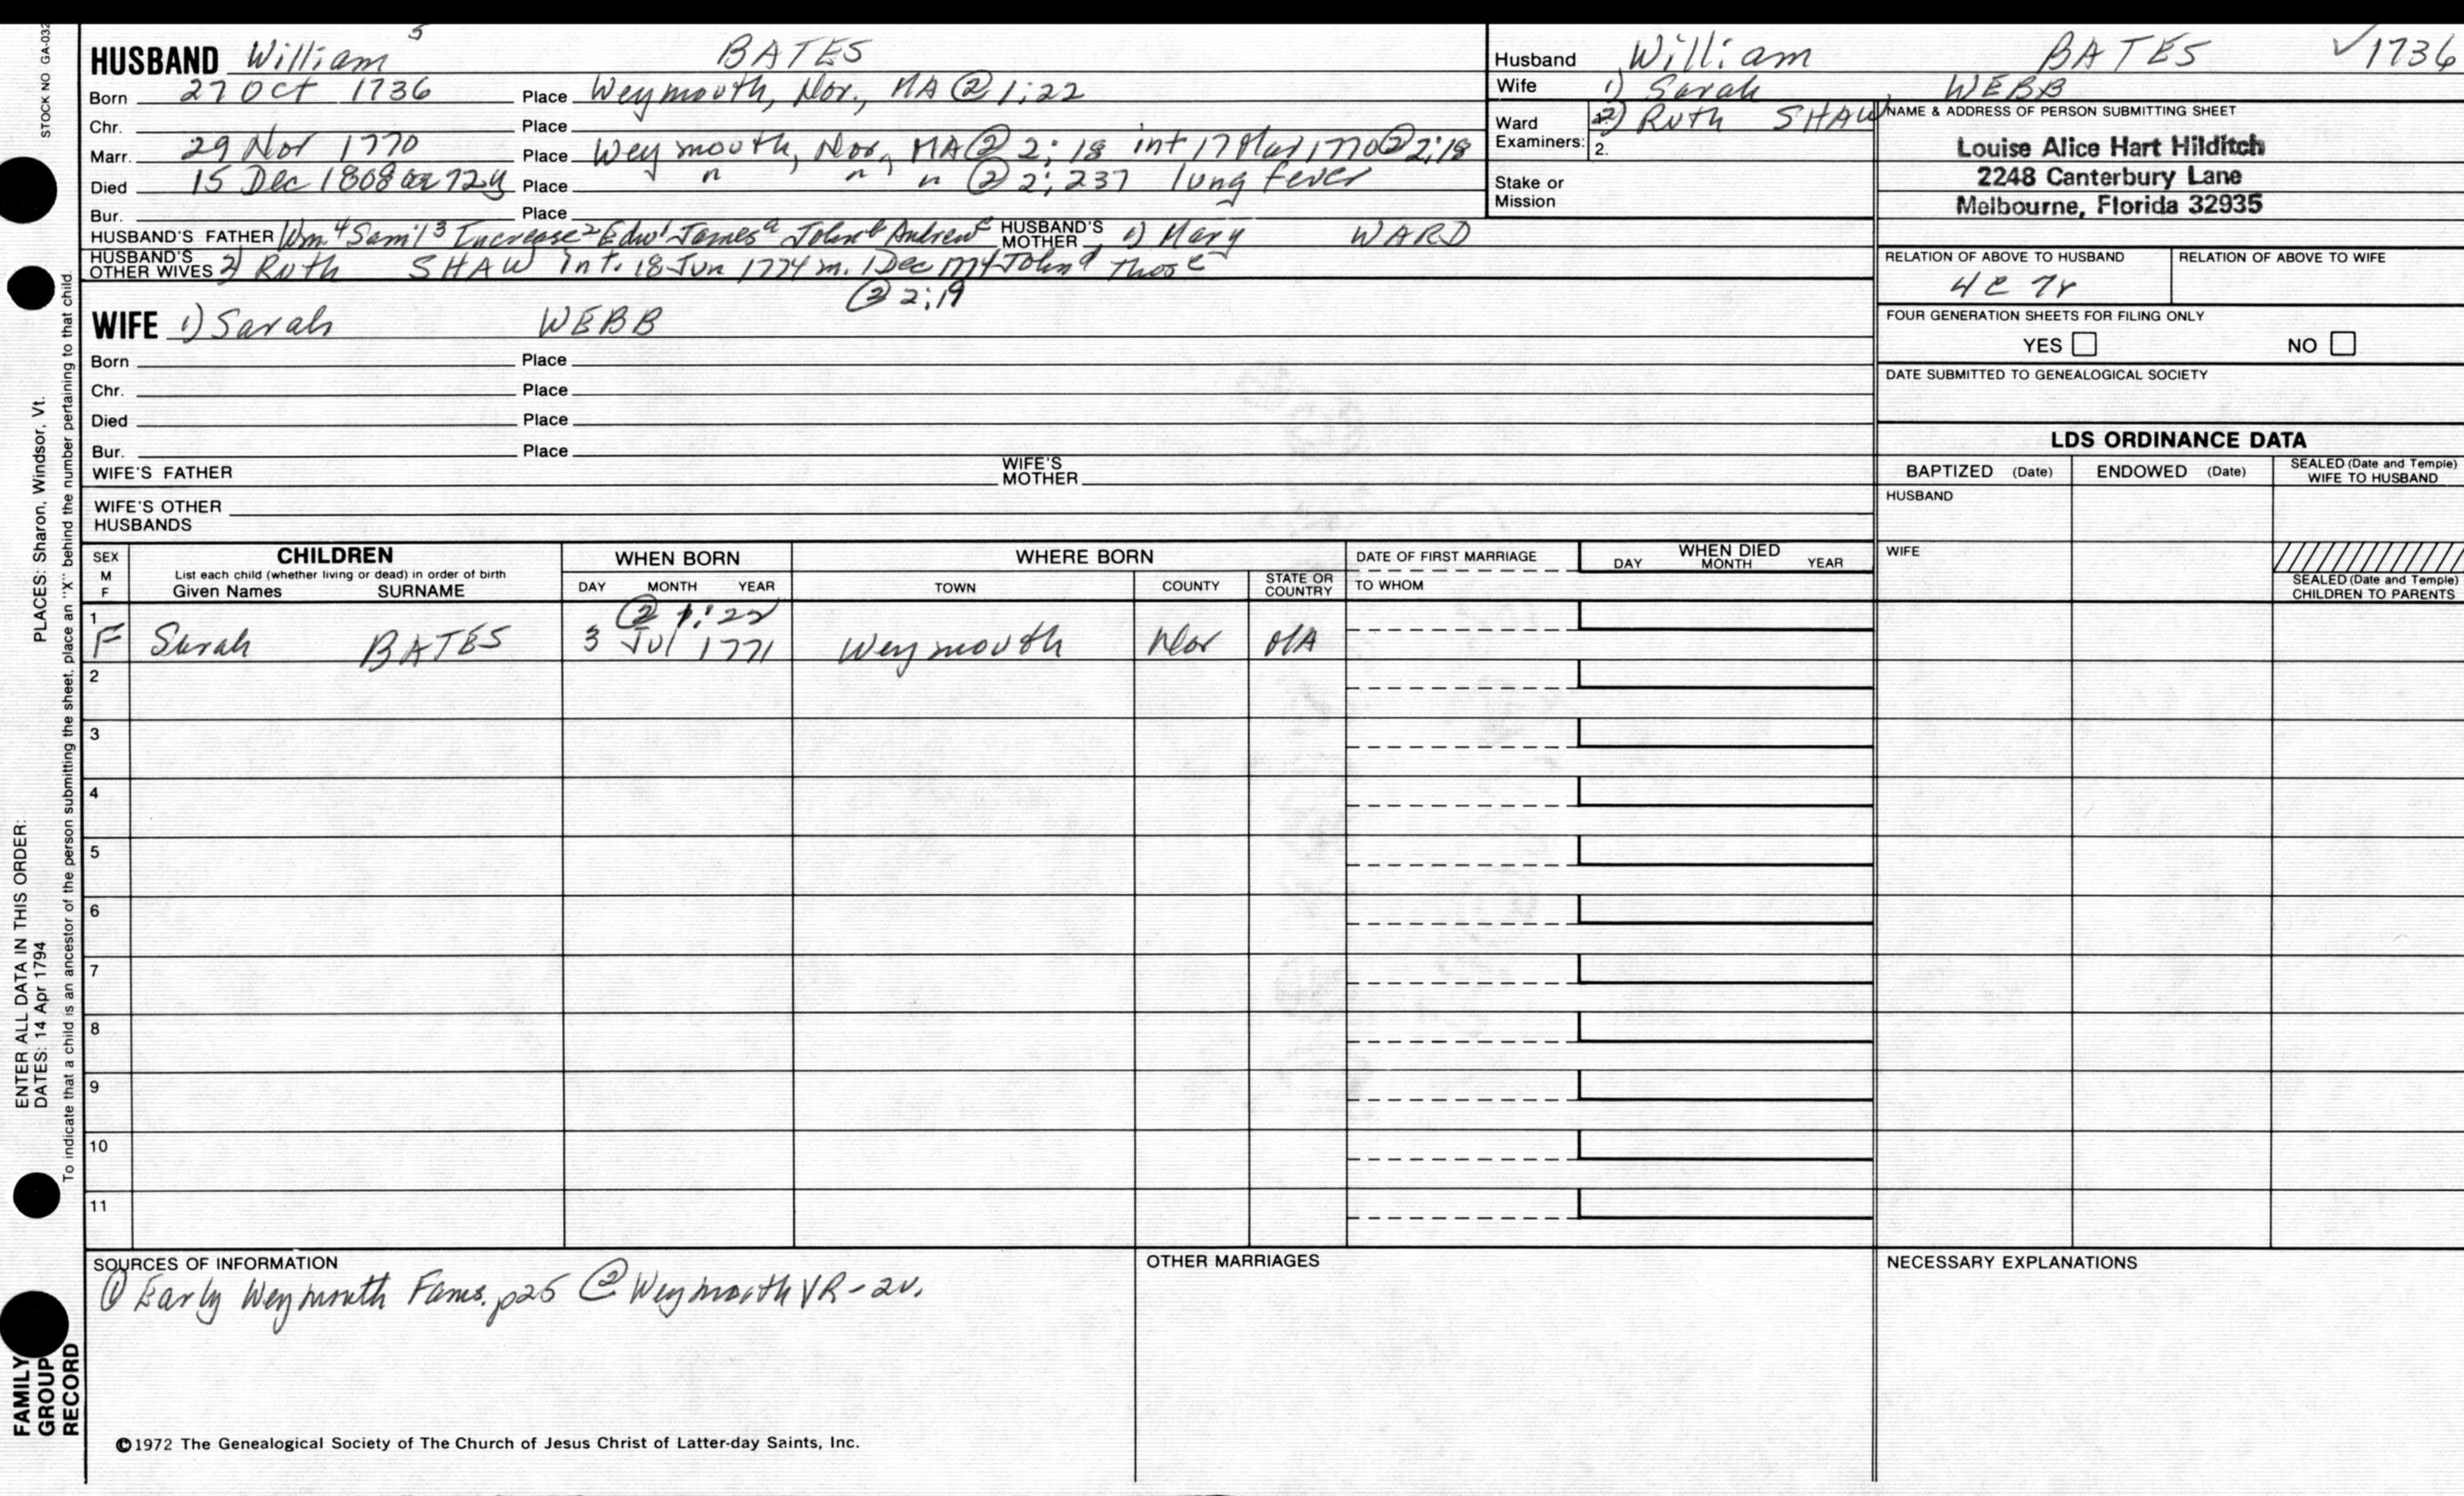 STOCK NO GA-032
HUSBAND William 5 BATES
Born 27 Oct 1736 Place Weymouth, Nor., MA @ 1:22
Chr. Place
Marr. 29 Nov 1770 Place Weymouth, Nor, MA ② 2; 18 int 17 Mar 1770 ② 2:18
Died 15 Dec 1808 ae 72y Place " " " ② 2; 237 lung fever
Bur. Place
HUSBAND'S FATHER Wm4 Sam'l3 Increase2 Edw1 Jamesa Johnb Andrewc HUSBAND'S MOTHER 1) Mary WARD
HUSBAND'S OTHER WIVES 2) Ruth SHAW int. 18 Jun 1774 m. 1 Dec 1774 Johnd Those
② 2:19
WIFE 1) Sarah WEBB
Born Place
Chr. Place
Died Place
Bur. Place
WIFE'S FATHER WIFE'S MOTHER
WIFE'S OTHER HUSBANDS
Husband William BATES ✓1736
Wife 1) Sarah WEBB
Ward Examiners: 2) Ruth SHAW
2.
Stake or Mission
NAME & ADDRESS OF PERSON SUBMITTING SHEET
Louise Alice Hart Hilditch
2248 Canterbury Lane
Melbourne, Florida 32935
RELATION OF ABOVE TO HUSBAND RELATION OF ABOVE TO WIFE
4c 7r
FOUR GENERATION SHEETS FOR FILING ONLY
YES NO
DATE SUBMITTED TO GENEALOGICAL SOCIETY
LDS ORDINANCE DATA
BAPTIZED (Date) ENDOWED (Date) SEALED (Date and Temple) WIFE TO HUSBAND
HUSBAND
WIFE
SEALED (Date and Temple) CHILDREN TO PARENTS
SEX M F CHILDREN WHEN BORN WHERE BORN DATE OF FIRST MARRIAGE WHEN DIED
List each child (whether living or dead) in order of birth
Given Names SURNAME DAY MONTH YEAR TOWN COUNTY STATE OR COUNTRY TO WHOM DAY MONTH YEAR
② 1:22
1 F Sarah BATES 3 Jul 1771 Weymouth Nor MA
2
3
4
5
6
7
8
9
10
11
SOURCES OF INFORMATION
① Early Weymouth Fams. p25 ② Weymouth VR-2v.
OTHER MARRIAGES
NECESSARY EXPLANATIONS
©1972 The Genealogical Society of The Church of Jesus Christ of Latter-day Saints, Inc.
ENTER ALL DATA IN THIS ORDER:
DATES: 14 Apr 1794 PLACES: Sharon, Windsor, Vt.
To indicate that a child is an ancestor of the person submitting the sheet, place an "X" behind the number pertaining to that child.
FAMILY
GROUP
RECORD